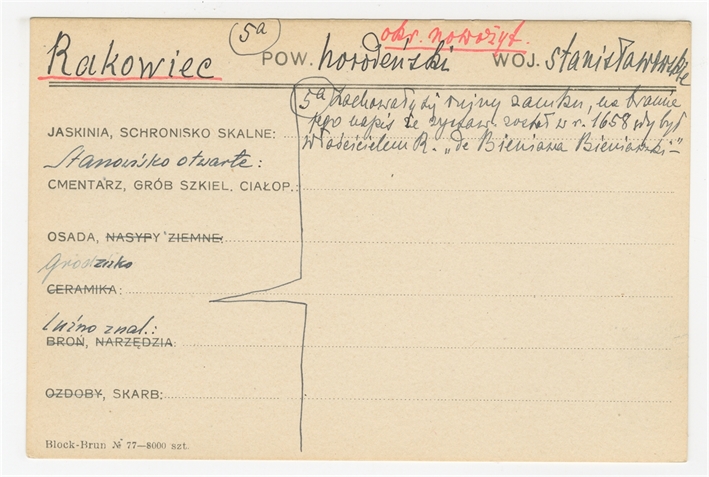 5a
okr. nowożyt.
Rakowiec POW. horodeński WOJ. stanisławowskie
5a Zachowały się ruiny zamku, na bramie
jego napis że zystaw. został w r. 1658 gdy był
JASKINIA, SCHRONISKO SKALNE:
właścicielem R. „de Bieniawa Bieniawski”
Stanowisko otwarte:
CMENTARZ, GRÓB SZKIEL. CIAŁOP.:
OSADA, NASYPY ZIEMNE:
Grodzisko
CERAMIKA:
Luźno znal.:
BROŃ, NARZĘDZIA:
OZDOBY, SKARB:
Block-Brun № 77—8000 szt.